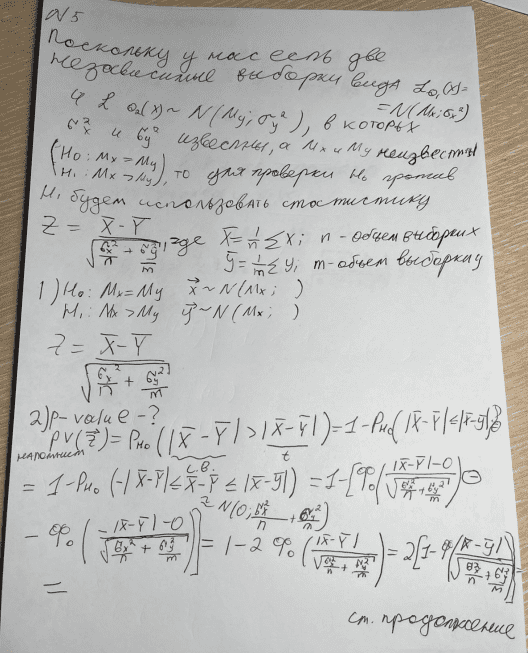 N5
Поскольку у нас есть две
независимые выборки вида ℒθ₁(x)=
=N(Mx;σx²)
и ℒ θ₂(x)~ N(My;σy²), в которых
σx² и σy² известны, а Mx и My неизвестны
(H₀: Mx = My
H₁: Mx > My), то для проверки H₀ против
H₁ будем использовать статистику
Z = (X̄-Ȳ)/√(σx²/n + σy²/m), где X̄=1/n Σx; n-объем выборки x
ȳ=1/m Σy, m-объем выборки y
1) H₀: Mx=My x⃗~N(Mx; )
H₁: Mx>My y⃗~N(Mx; )
z = (X̄-Ȳ)/√(σx²/n + σy²/m)
2) p-value-?
PV(z⃗)= P_H₀(|X̄-Ȳ|>|X̄-Ȳ|)=1-P_H₀(|X̄-Ȳ|≤|x̄-ȳ|)
напомним с.в. t
= 1-P_H₀(-|X̄-Ȳ|≤X̄-Ȳ≤|x̄-ȳ|) =1-[Φ₀(|X̄-Ȳ|-0/√(σx²/n + σy²/m))-
~N(0;σx²/n+σy²/m)
- Φ₀(-|X̄-Ȳ|-0/√(σx²/n + σy²/m))]= 1-2 Φ₀(|X̄-Ȳ|/√(σx²/n + σy²/m))=2[1-Φ(|x̄-ȳ|/√(σx²/n + σy²/m))]=
=
см. продолжение